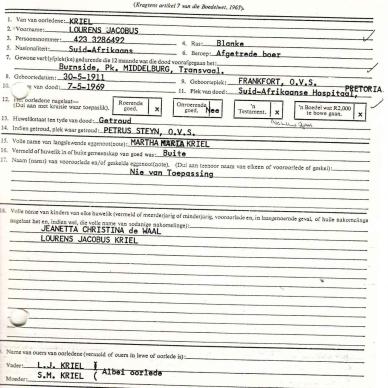 (Kragtens artikel 7 van die Boedelwet, 1965).
1. Van van oorledene: KRIEL
2. Voorname: LOURENS JACOBUS
3. Persoonsnommer: 423 3286492 4. Ras: Blanke
5. Nasionaliteit: Suid-Afrikaans 6. Beroep: Afgetrede boer
7. Gewone verblyfplek(ke) gedurende die 12 maande wat die dood voorafgegaan het:
Burnside, Pk. MIDDELBURG, Transvaal.
8. Geboortedatum: 30-5-1911 9. Geboorteplek: FRANKFORT, O.V.S.
10. van dood: 7-5-1969 11. Plek van dood: Suid-Afrikaanse Hospitaal, PRETORIA
12. Het oorledene nagelaat—
(Dui aan met kruisie waar toepaslik). Roerende goed. x Onroerende goed. Nee 'n Testament. x 'n Boedel wat R2,000 te bowe gaan. x
13. Huwelikstaat ten tyde van dood: Getroud
14. Indien getroud, plek waar getroud: PETRUS STEYN, O.V.S.
15. Volle name van langslewende eggenoot(note): MARTHA MARIA KRIEL
16. Vermeld of huwelik in of buite gemeenskap van goed was: Buite
17. Naam (name) van vooroorlede en/of geskeide eggenoot(note). (Dui aan teenoor naam van elkeen of vooroorlede of geskei):
Nie van Toepassing
18. Volle name van kinders van elke huwelik (vermeld of meerderjarig of minderjarig, vooroorlede en, in laasgenoemde geval, of hulle nakomelinge
nagelaat het en, indien wel, die volle name van sodanige nakomelinge):
JEANETTA CHRISTINA de WAAL
LOURENS JACOBUS KRIEL
Name van ouers van oorledene (vermeld of ouers in lewe of oorlede is):
Vader: L.J. KRIEL
Moeder: S.M. KRIEL ( Albei oorlede